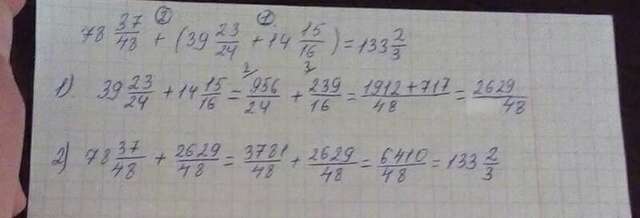 ② ①
78 37/48 + (39 23/24 + 14 15/16) = 133 2/3
2 3
1) 39 23/24 + 14 15/16 = 956/24 + 239/16 = 1912+717/48 = 2629/48
2) 78 37/48 + 2629/48 = 3781/48 + 2629/48 = 6410/48 = 133 2/3